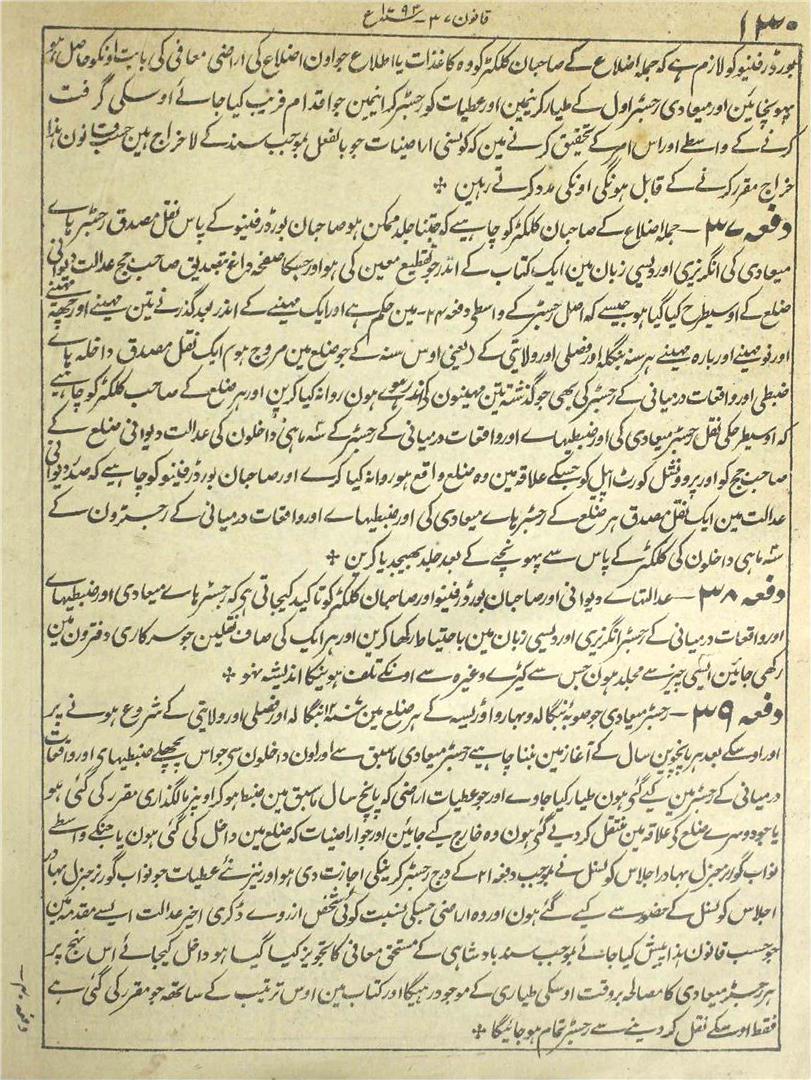 ۱۳۰
قانون ۳۷ - ۱۷۹۳ع
بورڈ رفنیو کو لازم ہے کہ جملہ اضلاع کے صاحبان کلکٹر کو وہ کاغذات یا اطلاع جو اون اضلاع کی اراضی معافی کی بابت اونکو حاصل ہو
پہونچائین اور میعادی رجسٹر اول کے طیار کرنیمین اور عطیات کو رجسٹر کرانیمین جو اقدام فریب کیا جائے اوسکی گرفت
کرنے کے واسطے اور اس امر کے تحقیق کرنے مین کہ کونسی اراضیات جو بالفعل بموجب سند کے لاخراج ہین حسب قانون ہذا
خراج مقرر کرنے کے قابل ہونگی اونکی مدد کرتے رہین *
دفعہ ۳۷ - جملہ اضلاع کے صاحبان کلکٹر کو چاہیے کہ جتنا جلد ممکن ہو صاحبان بورڈ رفنیو کے پاس نقل مصدق رجسٹر ہاے
میعادی کی انگریزی اور دیسی زبان مین ایک کتاب کے اندر جو تقطیع معین کی ہو اور جسکا صفحہ داغ و تصدیق صاحب جج عدالت دیوانی
ضلع کے اوسیطرح کیا گیا ہو جیسے کہ اصل رجسٹر کے واسطے دفعہ ۲۴ - مین حکم ہے اور ایک مہینے کے اندر بعد گذرنے تین مہینے اور چھہ مہینے
اور نو مہینے اور بارہ مہینے ہر سنہ بنگلہ اور فصلی اور ولایتی کے (یعنی اوس سنہ کے جو ضلع مین مروج ہو) ایک نقل مصدق داخلہ ہاے
ضبطی اور واقعات درمیانی کے رجسٹر کی بھی جو گذشتہ تین مہینون کے اندر ہوے ہون روانہ کیا کرین اور ہر ضلع کے صاحب کلکٹر کو چاہیے
کہ اوسیطرحکی نقل رجسٹر میعادی کی اور ضبطیہاے اور واقعات درمیانی کے رجسٹر کے سہ ماہی داخلون کی عدالت دیوانی ضلع کے
صاحب جج کو اور پرووِنشل کورٹ اپیل کو جسکے علاقہ مین وہ ضلع واقع ہو روانہ کیا کرے اور صاحبان بورڈ رفنیو کو چاہیے کہ صدر دیوانی
عدالت مین ایک نقل مصدق ہر ضلع کے رجسٹر ہاے میعادی کی اور ضبطیہاے اور واقعات درمیانی کے رجسترون کے
سہ ماہی داخلون کی کلکٹر کے پاس سے پہونچنے کے بعد جلد بھیجدیا کرین *
دفعہ ۳۸ - عدالتہاے دیوانی اور صاحبان بورڈ رفنیو اور صاحبان کلکٹر کو تاکید کیجاتی ہی کہ رجسٹر ہاے میعادی اور ضبطیہاے
اور واقعات درمیانی کے رجسٹر انگریزی اور دیسی زبان مین باحتیاط رکھا کرین اور ہر ایک کی صاف نقلین جو سرکاری دفترون مین
رکھی جائین ایسی چیز سے مجلد ہون جس سے کیڑے وغیرہ سے اونکے تلف ہونیکا اندیشہ نہو *
دفعہ ۳۹ - رجسٹر میعادی جو صوبہ بنگالہ و بہار و اوڑیسہ کے ہر ضلع مین بنگالہ اور فصلی اور ولایتی کے شروع ہونے پر
اور اوسکے بعد ہر پانچوین سال کے آغاز مین بننا چاہیے رجسٹر میعادی ماسبق سے اور اون داخلون سی جو اس پچھلے ضبطیہاے اور واقعات
درمیانی کے رجسٹر مین کیے گئی ہون طیار کیا جاوے اور جو عطیات اراضی کہ پانچ سال ماسبق مین ضبط ہوکر اونپر مالگذاری مقرر کی گئی ہو
یا جو دوسرے ضلع کی علاقہ مین منتقل کر دیے گئی ہون وہ خارج کیے جائین اور جو اراضیات کہ ضلع مین داخل کی گئی ہون یا جنکے واسطے
نواب گورنر جنرل بہادر اجلاس کونسل نے بموجب دفعہ ۲۱ کے درج رجسٹر کرنیکی اجازت دی ہو اور نیز نئے عطیات جو نواب گورنر جنرل بہادر
اجلاس کونسل کے حضور سے کیے گئے ہون اور وہ اراضی جسکی نسبت کوئی شخص ازروے ڈکری اخیر عدالت ایسے مقدمہ مین
جو حسب قانون ہذا پیش کیا جائے بموجب سند بادشاہی کے مستحق معافی کا تجویز کیا گیا ہو داخل کیجائے اس نہج پر
ہر رجسٹر میعادی کا مصالحہ بروقت اوسکی طیاری کے موجود رہیگا اور کتاب مین اوس ترتیب کے ساتھہ جو مقرر کی گئی ہے
فقط اوسکے نقل کر دینے سے رجسٹر تمام ہو جائیگا *
دفعہ ۴۰ -